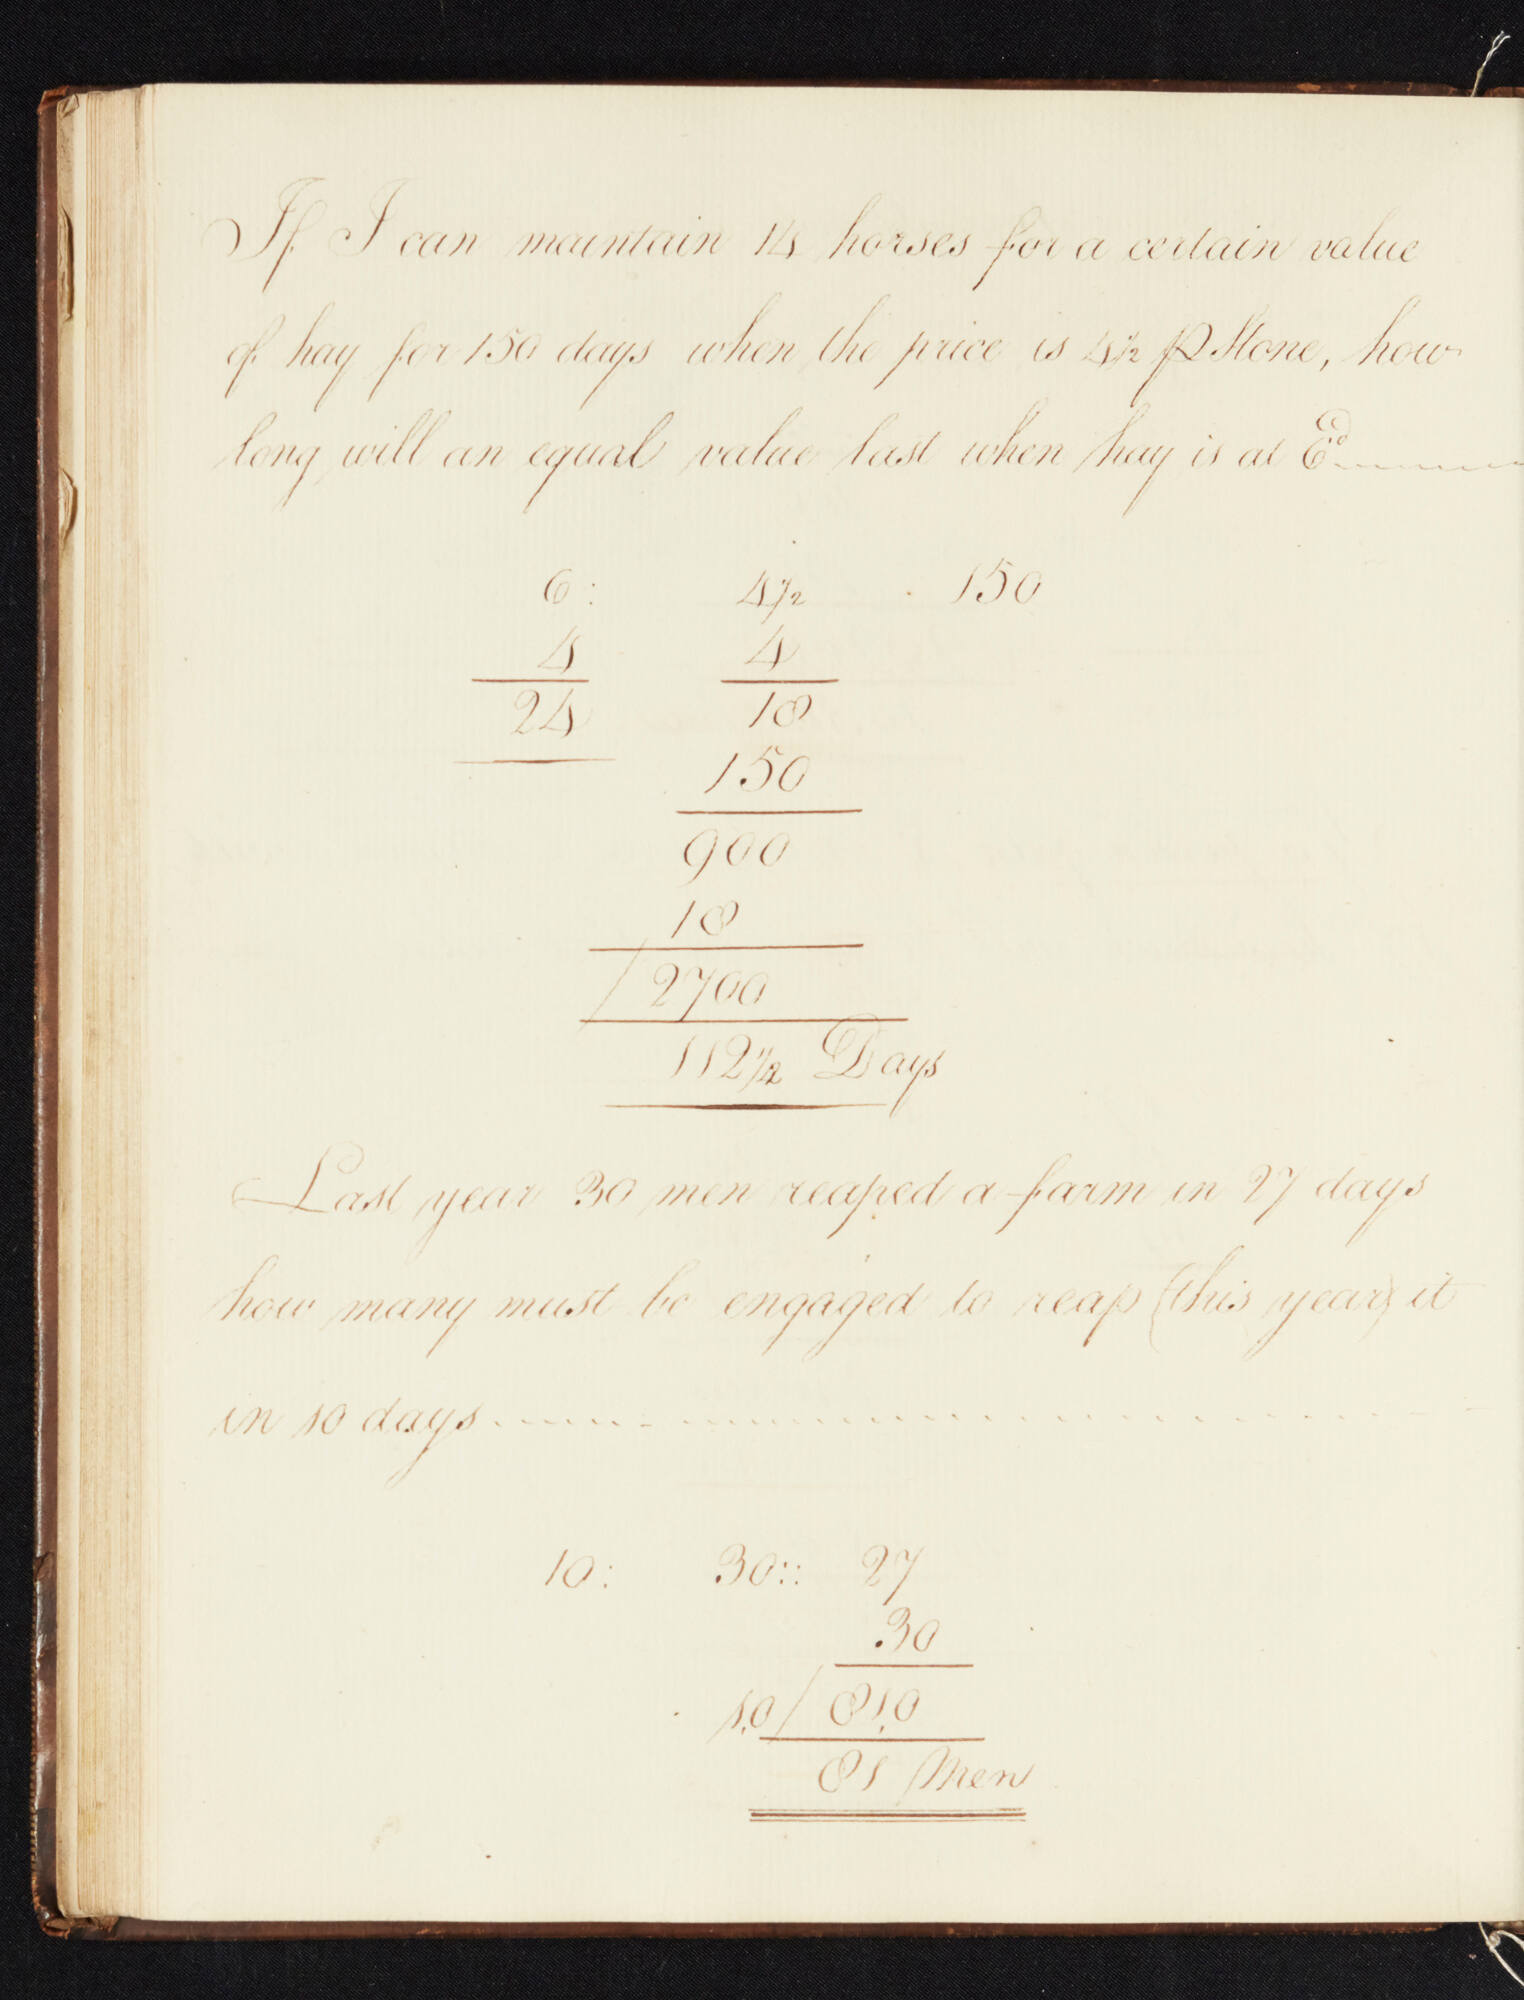 If I can maintain 14 horses for a certain value
of hay for 150 days when the price is 4½ ⅌ Stone, how
long will an equal value last when hay is at 6ᵈ
6: 4½ 150
4 4
24 18
150
900
18
2700
112½ Days
Last year 30 men reaped a farm in 27 days
how many must be engaged to reap (this year) it
in 10 days
10: 30:: 27
30
1.0 / 81.0
81 Men